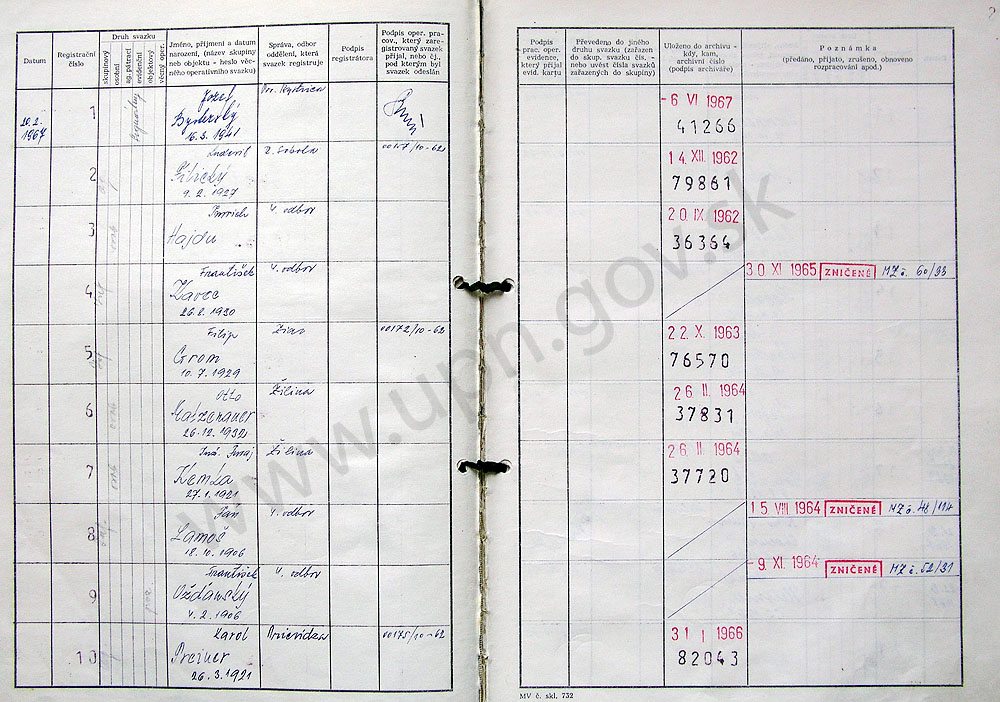 Datum
Registrační číslo
Druh svazku
skupinový
osobní
ag. pátrací
evidenční
objektový
věcný oper.
Jméno, příjmení a datum
narození, (název skupiny
neb objektu - heslo věc-
ného operativního svazku)
Správa, odbor
oddělení, která
svazek registruje
Podpis
registrátora
Podpis oper. pra-
cov., který zare-
gistrovaný svazek
přijal, nebo čj.,
pod kterým byl
svazek odeslán
Podpis
prac. oper.
evidence,
který přijal
evid. kartu
Převedeno do jiného
druhu svazku (zařazen
do skup. svazku čís. -
nebo uvést čísla svazků
zařazených do skupiny)
Uloženo do archivu -
kdy, kam,
archivní číslo
(podpis archiváře)
Poznámka
(předáno, přijato, zrušeno, obnoveno
rozpracování apod.)
1967
1
Jozef
16. 3. 1941
- 6 VI 1967
41266
2
9. 2. 1927
00157/10-62
14. XII. 1962
79861
3
Hajdu
4. odbor
20 IX. 1962
36364
4
František
4. odbor
26. 2. 1930
30 XI 1965 ZNIČENÉ MZ č. 60/33
5
Filip
Grom
10. 7. 1929
00172/10-62
22. X. 1963
76570
6
Otto
Žilina
26. 12. 1932
26 II. 1964
37831
7
Žilina
27. 1. 1921
26. II 1964
37720
8
Ján
4. odbor
Lamoš
18. 10. 1906
15 VIII 1964 ZNIČENÉ MZ č. 48/114
9
František
4. odbor
Oždanský
4. 2. 1906
- 9. XI. 1964 ZNIČENÉ MZ č. 52/31
10
Karol
Prievidza
Preiner
26. 3. 1921
00175/10-62
31 I 1966
82043
MV č. skl. 732
www.upn.gov.sk